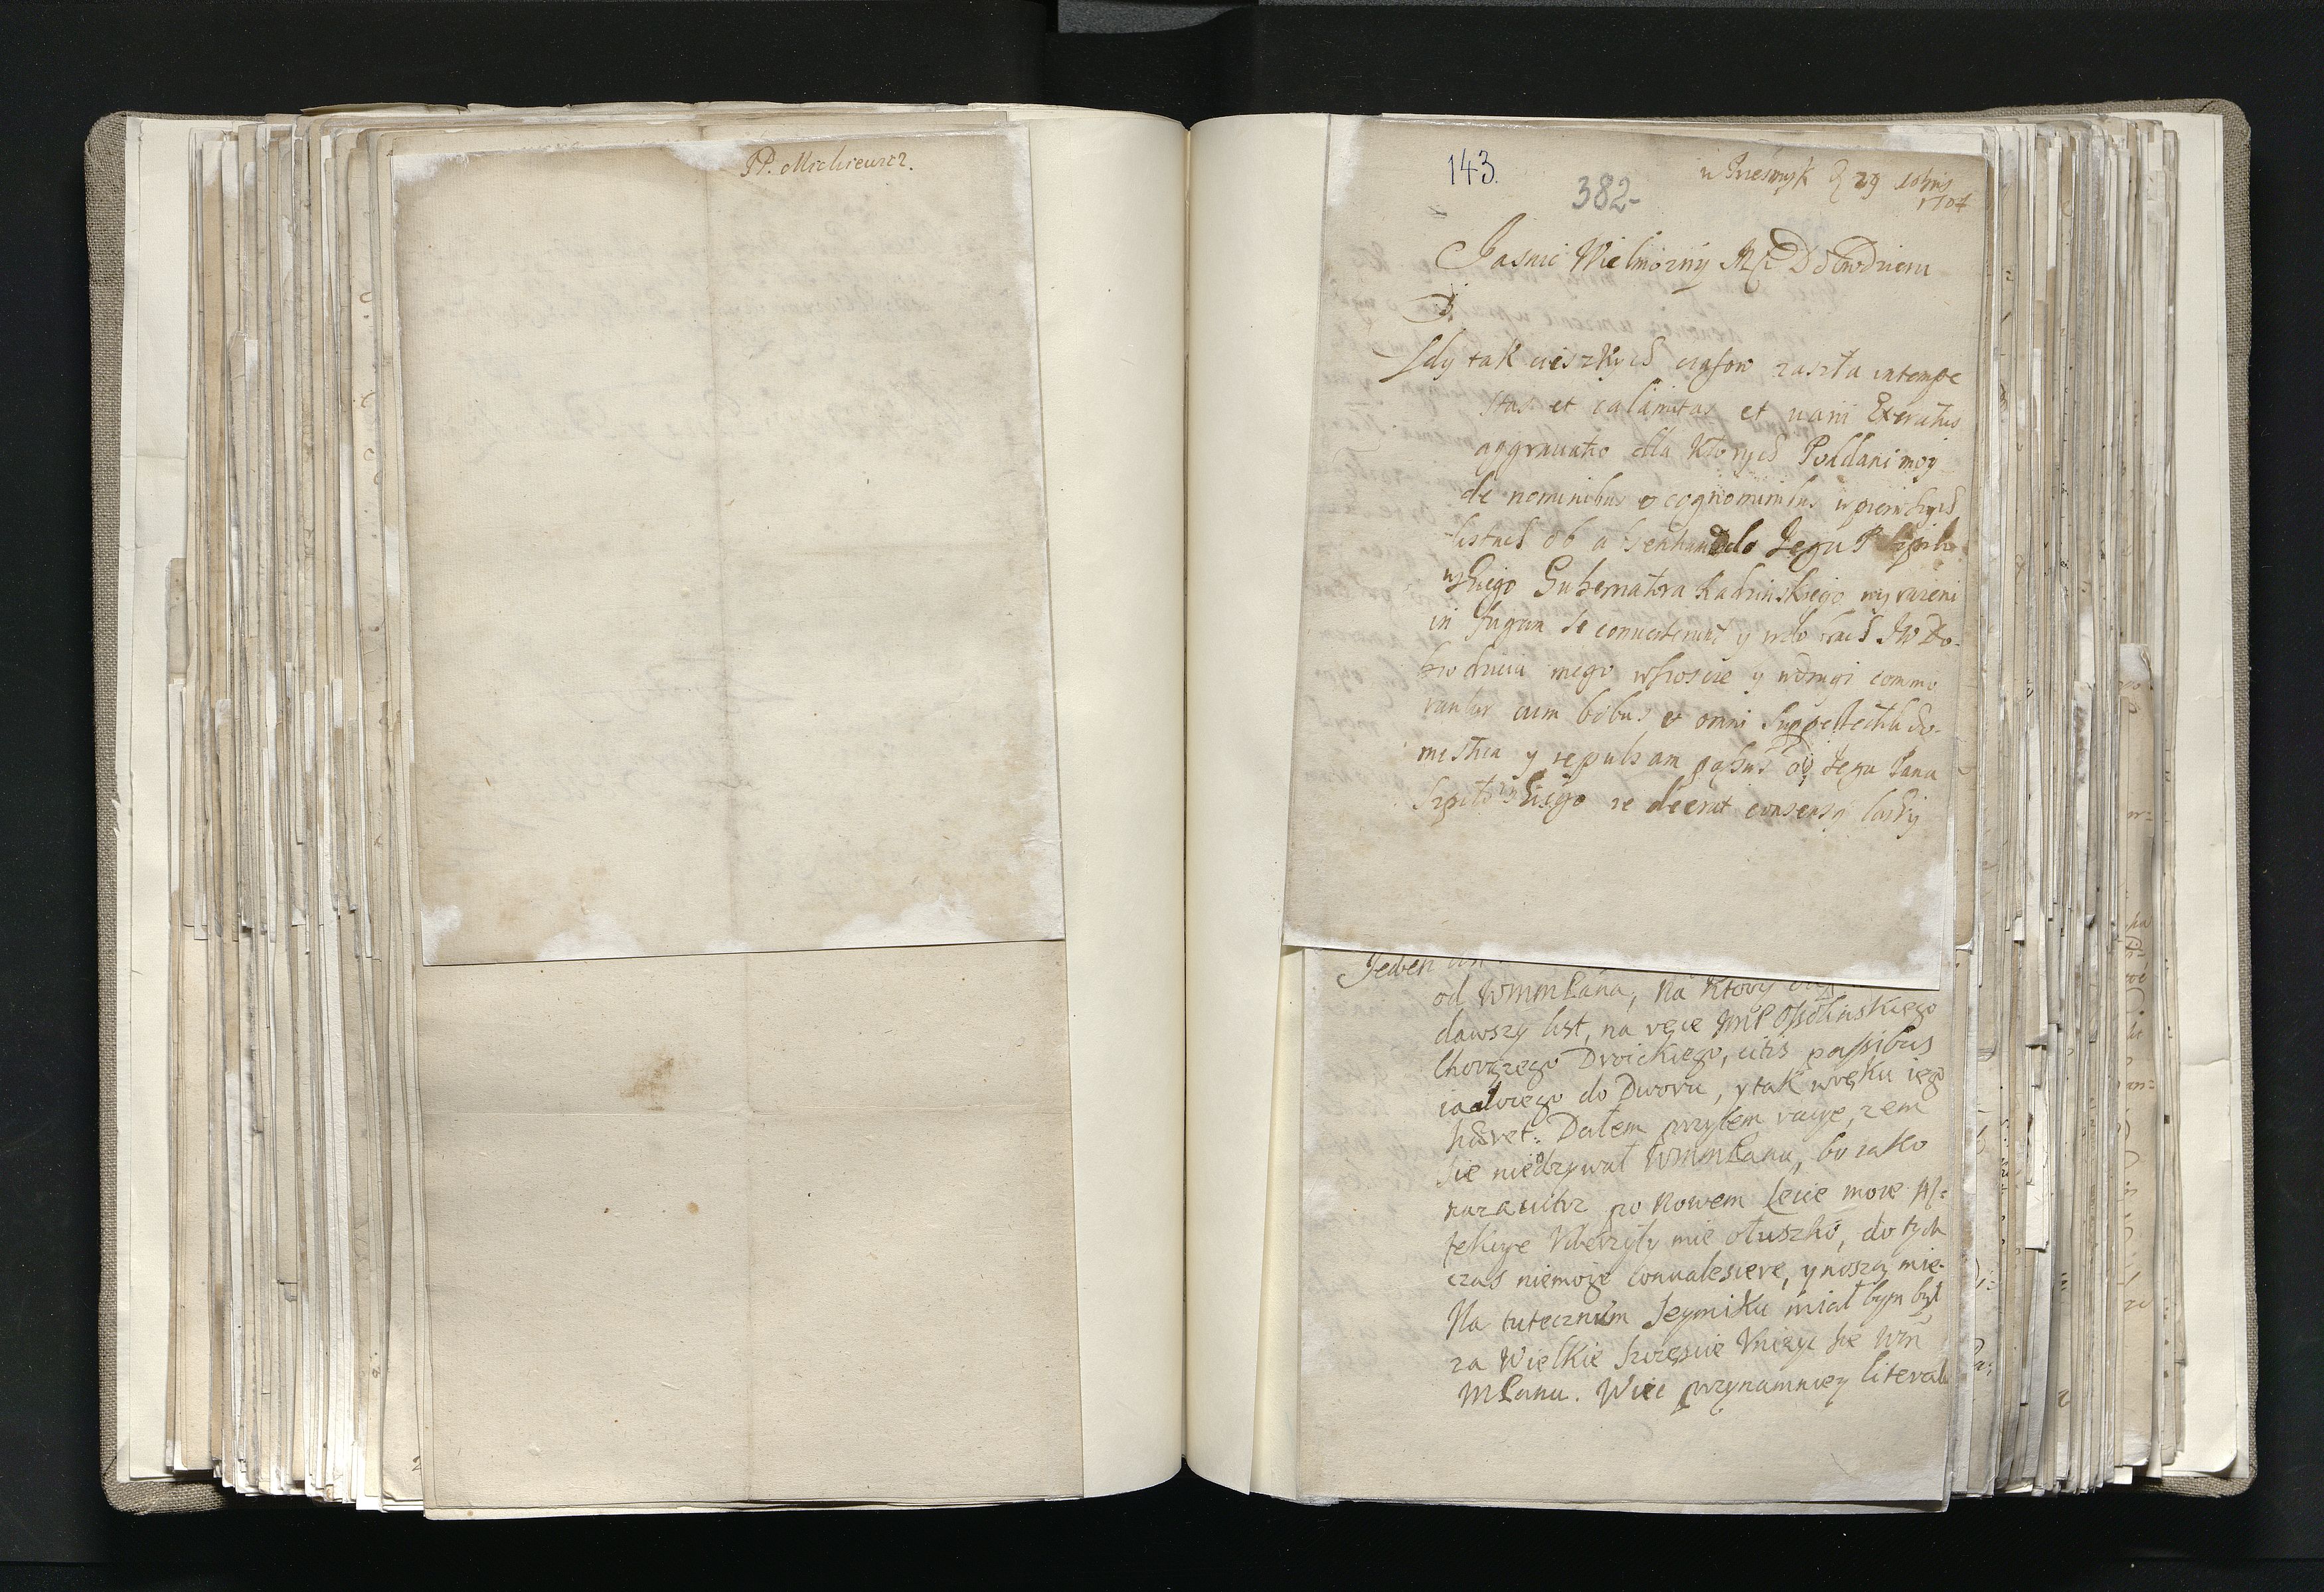 JP. Mickiewicz.
143.
382-
29 10bris
1704
Jasnie Wielmozny Mci Dobrodzieiu
Gdy tak cieszkich czasow zaszła intempe
stas et calamitas et varii Exercitus
aggravatio dla ktorych Poddani moy
de nominibus et cognominibus w pierwszych
listach ob Jego P
Gubernatora wyrażeni
in fugam se converterunt y w JW Do-
brodzieia mego y w drugi commo
rantur cum bobus et omni suppellectili do-
mestica y repulsam od Jego Pana
Szpiłowskiego ze deerat consensy łaski
Jeden
od WMMPana, na ktory
dawszy list, na ręce JMP Ossolinskiego
Chorązego Drohickiego, citis passibus
iadącego do Dworu, y tak w ręku iego
hæret: Dałem przytem racye, zem
sie nieodzywał WMMPanu, bo iako
nazaiutrz po Nowem Lecie moie Af-
fekcye vderzyły mie o łuszko, do tych
czas niemogę convalescere, y noszą mie.
Na tutecznem Seymiku miał bym był
za Wielkie Szczęscie vniżyć się WM
MPanu. Więc przynamniey literal